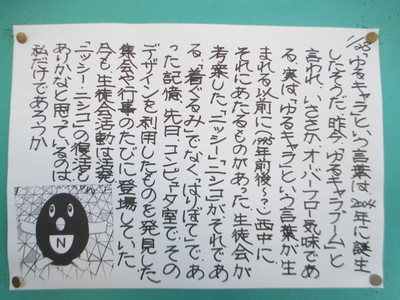 1/25「ゆるキャラ」という言葉は、2004年に誕生
したそうだ。昨今、「ゆるキャラブーム」と
言われ、いささか、オーバーフロー気味であ
る。実は、「ゆるキャラ」という言葉が生
まれる以前に(1995年前後??)西中に、
それにあたるものがあった。生徒会が
考案した、「ニッシー・ニシコ」がそれであ
る。「着ぐるみ」でなく、「はりぼて」で、あ
った記憶。先日、コンピュータ室で、その
デザインを利用したものを発見した。
集会や行事のたびに登場していた。
今も生徒会活動は活発
「ニッシー・ニシコ」の復活も
ありかなと思っているのは
私だけであろうか。
N